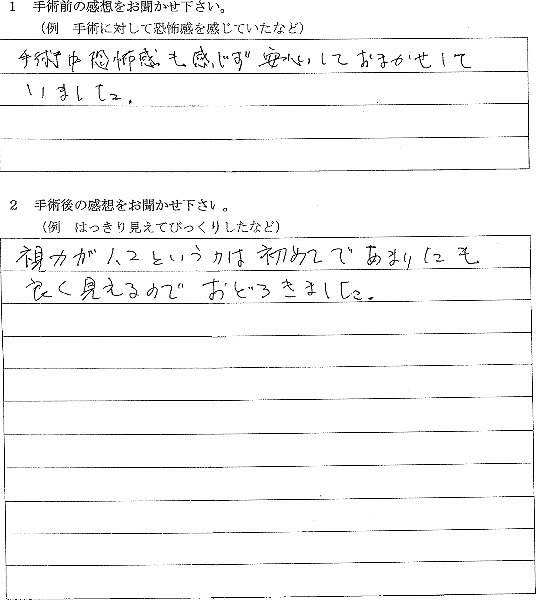 1 手術前の感想をお聞かせ下さい。
(例 手術に対して恐怖感を感じていたなど)
手術中恐怖感も感じず安心しておまかせして
いました。
2 手術後の感想をお聞かせ下さい。
(例 はっきり見えてびっくりしたなど)
視力が1.2というのは初めてであまりにも
良く見えるのでおどろきました。